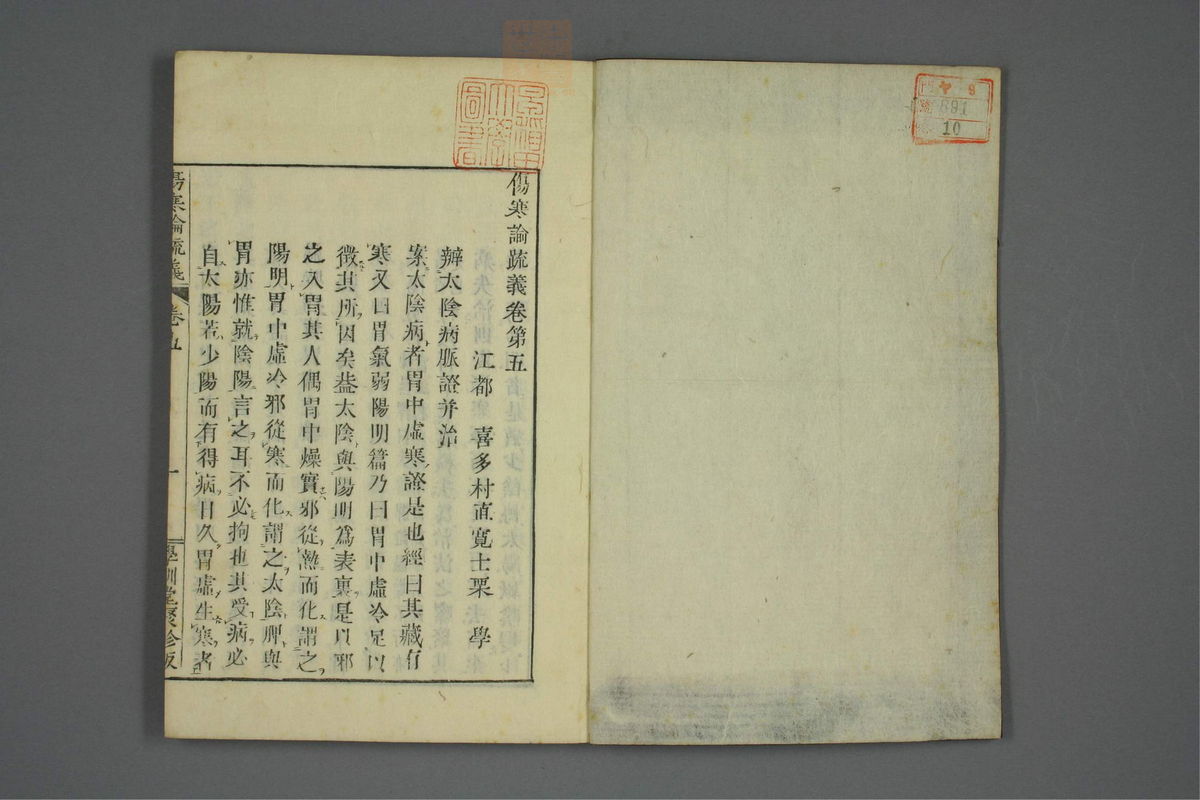 門 ヤ 9
號 891
卷 10
早稲田
大學
圖書
傷寒論疏義卷第五
江都 喜多村直寬士栗 學
辯太陰病脈證并治
案太陰病者胃中虛寒證是也經曰其藏有
寒又曰胃氣弱陽明篇乃曰胃中虛冷足以
徵其所因矣蓋太陰與陽明爲表裏是以邪
之入胃其人偶胃中燥實邪從熱而化謂之
陽明胃中虛冷邪從寒而化謂之太陰脾與
胃亦惟就陰陽言之耳不必拘也其受病必
自太陽若少陽而有得病日久胃虛生寒者
傷寒論疏義 卷五 一 學訓堂聚珍版